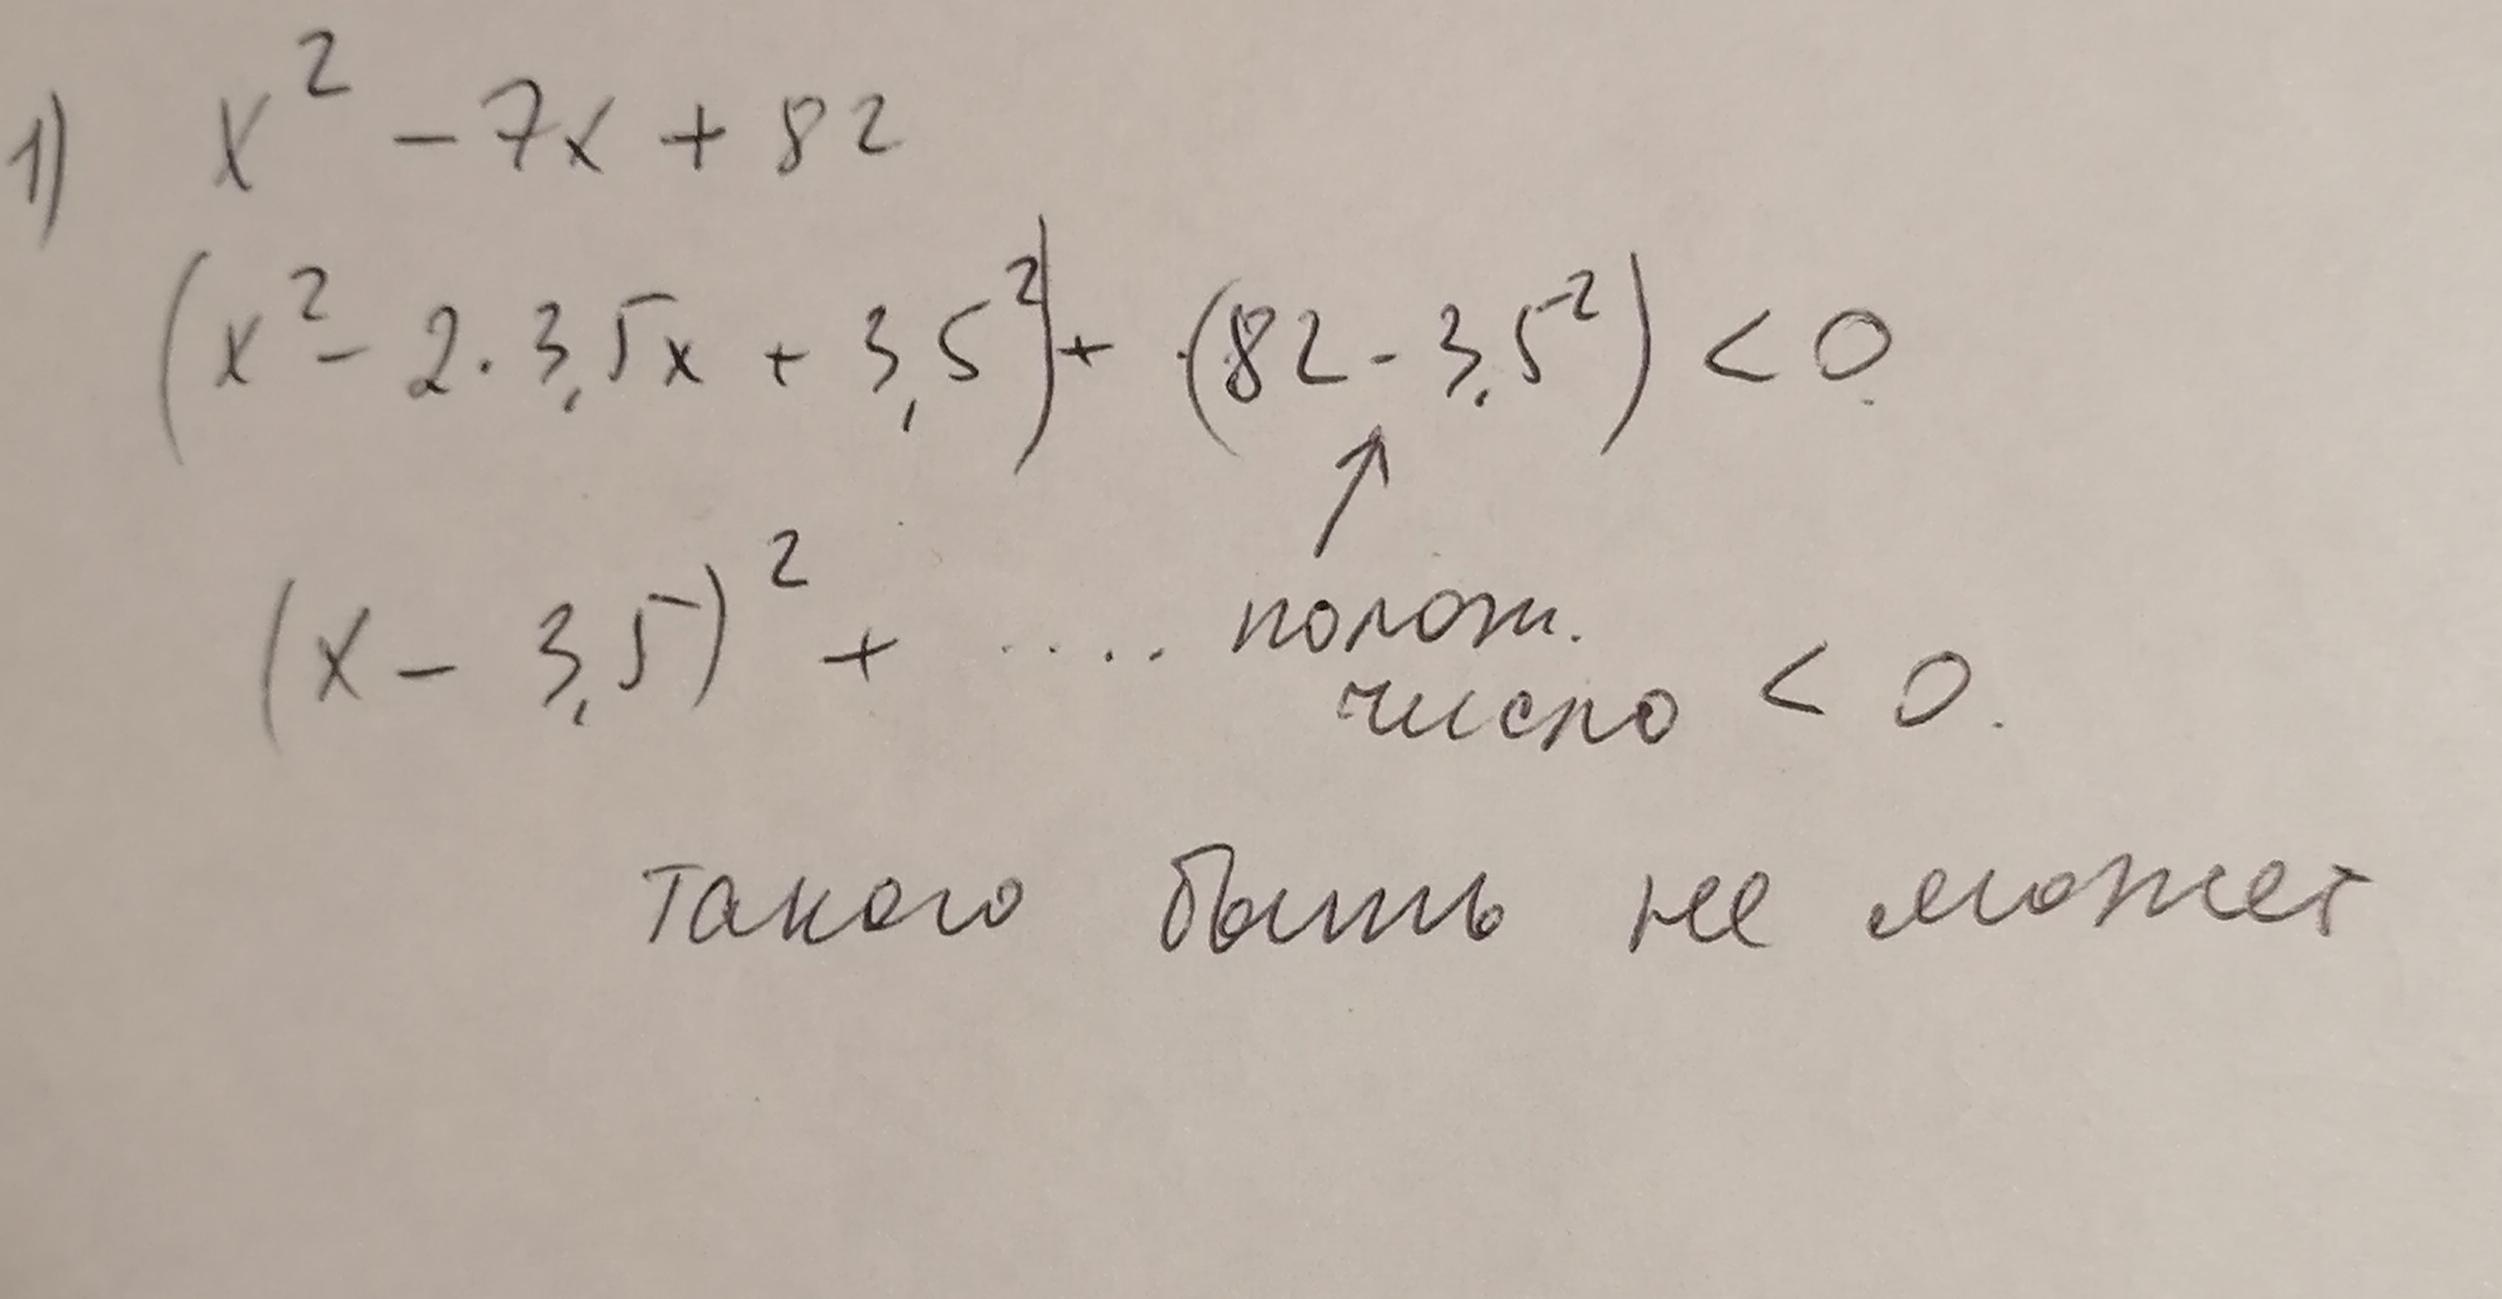 1) x² - 7x + 82
(x² - 2·3,5x + 3,5²) + (82 - 3,5²) < 0
(x - 3,5)² + .... полож.
число < 0.
такого быть не может